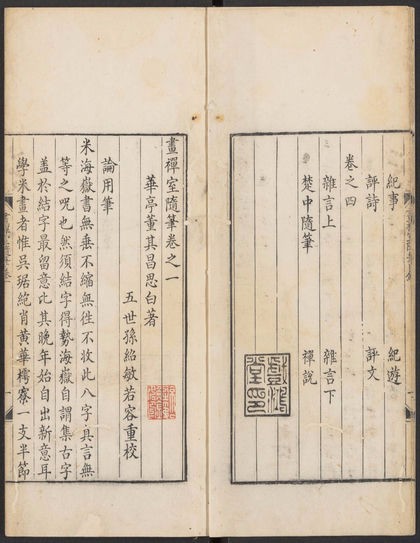 紀事 紀遊
評詩 評文
卷之四
雜言上 雜言下
楚中隨筆 禪説
畫禪室隨筆卷之一
華亭董其昌思白著
五世孫紹敏若容重校
論用筆
米海嶽書無垂不縮無徃不收此八字真言無
等之呪也然須結字得勢海嶽自謂集古字
盖於結字最留意比其晚年始自出新意耳
學米畫者惟吳琚絶肖黃華樗寮一支半節